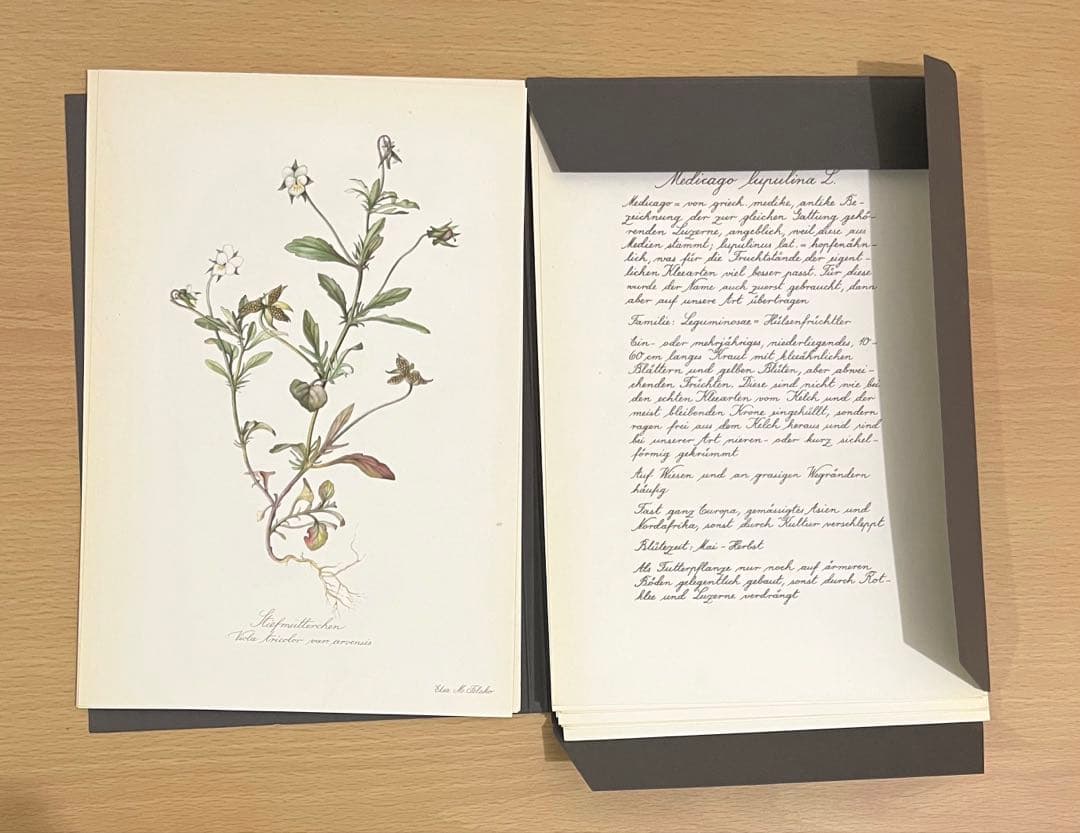 Stiefmütterchen
Viola tricolor var. arvensis
Elsa M. Felsko
Medicago lupulina L.
Medicago = von griech. medike, antike Be-
zeichnung der zur gleichen Gattung gehö-
renden Luzerne, angeblich, weil diese aus
Medien stammt; lupulinus lat. = hopfenähn-
lich, was für die Fruchtstände der eigent-
lichen Kleearten viel besser passt. Für diese
wurde der Name auch zuerst gebraucht, dann
aber auf unsere Art übertragen
Familie: Leguminosae = Hülsenfrüchtler
Ein- oder mehrjähriges, niederliegendes, 10-
60 cm langes Kraut mit kleeähnlichen
Blättern und gelben Blüten, aber abwei-
chenden Früchten. Diese sind nicht wie bei
den echten Kleearten vom Kelch und der
meist bleibenden Krone eingehüllt, sondern
ragen frei aus dem Kelch heraus und sind
bei unserer Art nieren- oder kurz sichel-
förmig gekrümmt
Auf Wiesen und an grasigen Wegrändern
häufig
Fast ganz Europa, gemäßigtes Asien und
Nordafrika, sonst durch Kultur verschleppt
Blütezeit: Mai - Herbst
Als Futterpflanze nur noch auf ärmeren
Böden gelegentlich gebaut, sonst durch Rot-
klee und Luzerne verdrängt